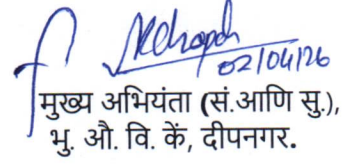 02/04/26
मुख्य अभियंता (सं.आणि सु.),
भु. औ. वि. कें, दीपनगर.